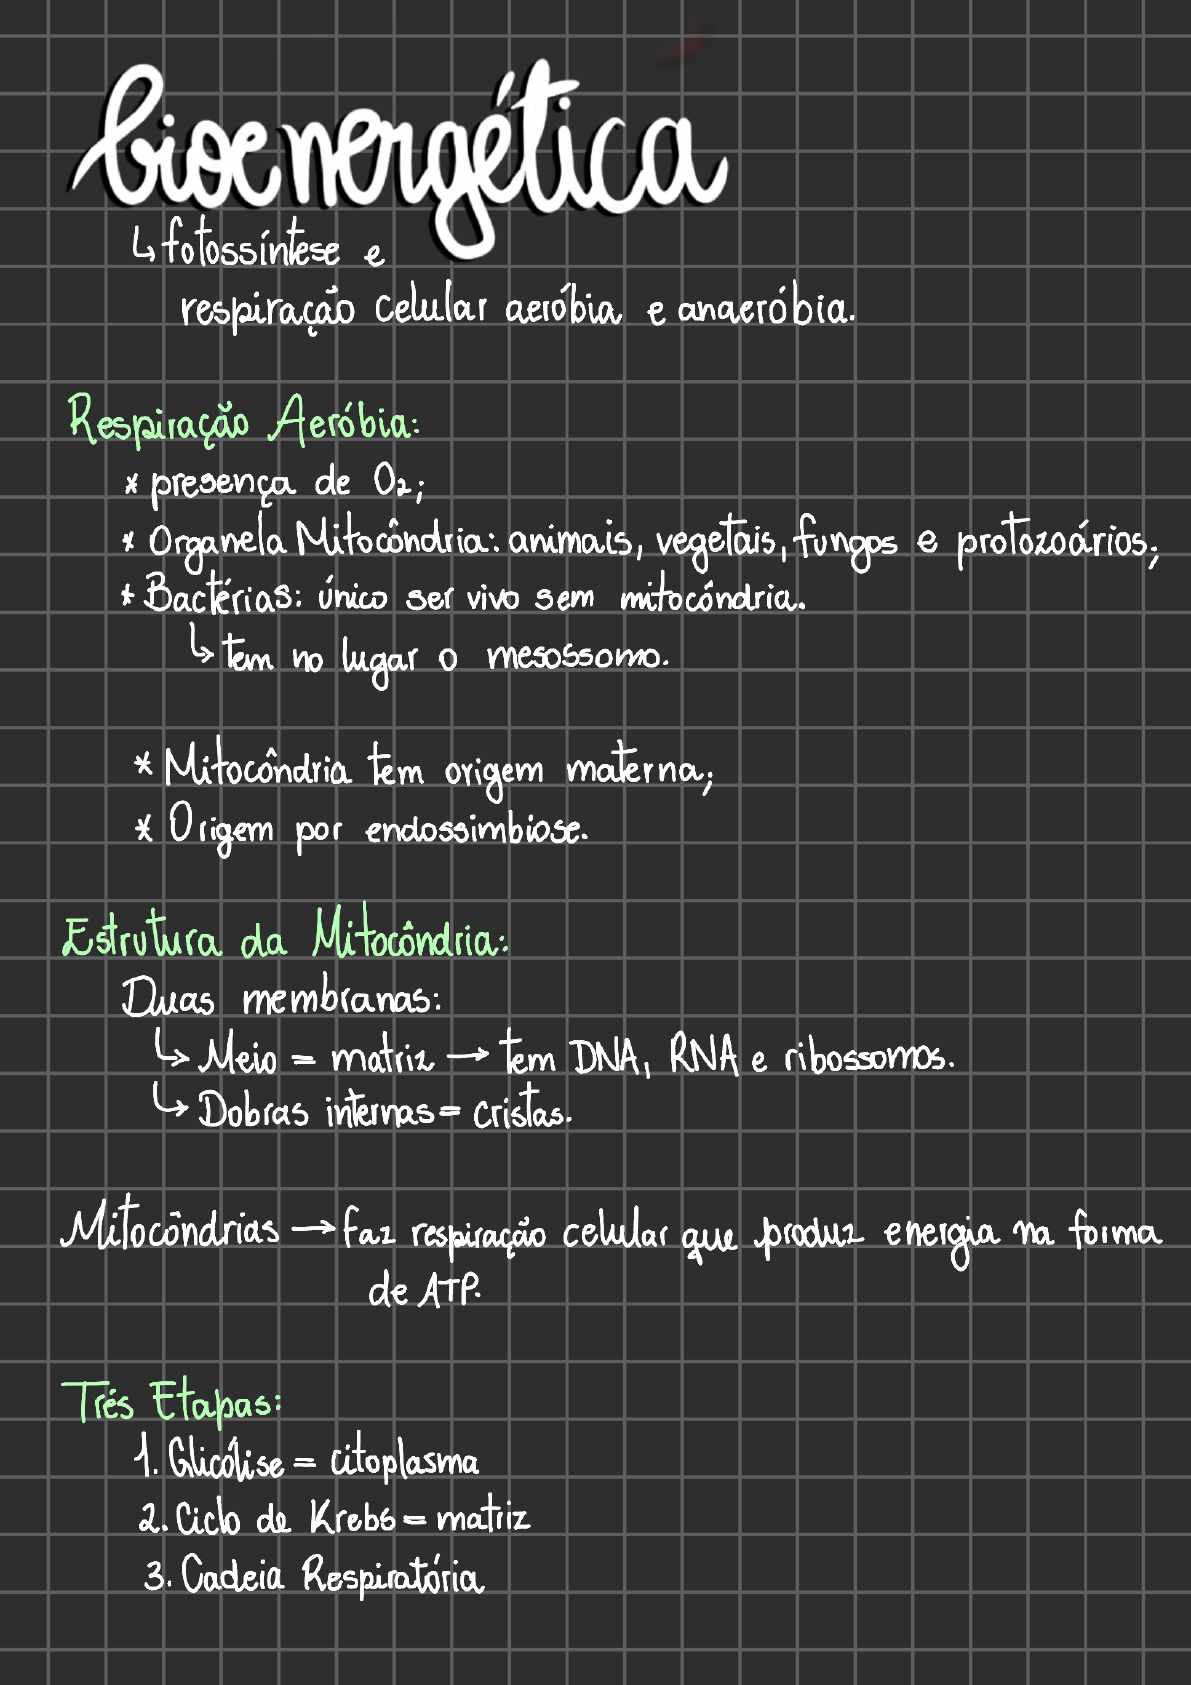 bioenergética
↳ fotossíntese e
respiração celular aeróbia e anaeróbia.
Respiração Aeróbia:
* presença de O₂;
* Organela Mitocôndria: animais, vegetais, fungos e protozoários;
* Bactérias: único ser vivo sem mitocôndria.
↳ tem no lugar o mesossomo.
* Mitocôndria tem origem materna;
* Origem por endossimbiose.
Estrutura da Mitocôndria:
Duas membranas:
↳ Meio = matriz → tem DNA, RNA e ribossomos.
↳ Dobras internas = cristas.
Mitocôndrias → faz respiração celular que produz energia na forma
de ATP.
Três Etapas:
1. Glicólise = citoplasma
2. Ciclo de Krebs = matriz
3. Cadeia Respiratória